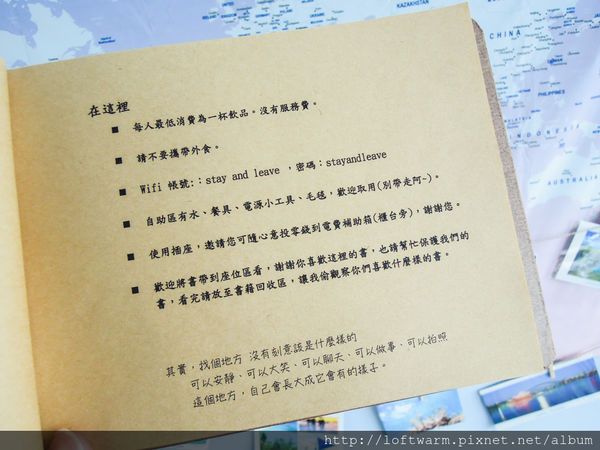 在這裡
■ 每人最低消費為一杯飲品。沒有服務費。
■ 請不要攜帶外食。
■ Wifi 帳號:：stay and leave ，密碼：stayandleave
■ 自助區有水、餐具、電源小工具、毛毯，歡迎取用(別帶走阿~)。
■ 使用插座，邀請您可隨心意投零錢到電費補助箱(櫃台旁)，謝謝您。
■ 歡迎將書帶到座位區看，謝謝你喜歡這裡的書，也請幫忙保護我們的
書，看完請放至書籍回收區，讓我偷觀察你們喜歡什麼樣的書。
其實，找個地方 沒有刻意該是什麼樣的
可以安靜、可以大笑、可以聊天、可以做事、可以拍照
這個地方，自己會長大成它會有的樣子。
KAZAKHSTAN
CHINA
PHILIPPINES
INDONESIA
AUSTRALIA
http://loftwarm.pixnet.net/album